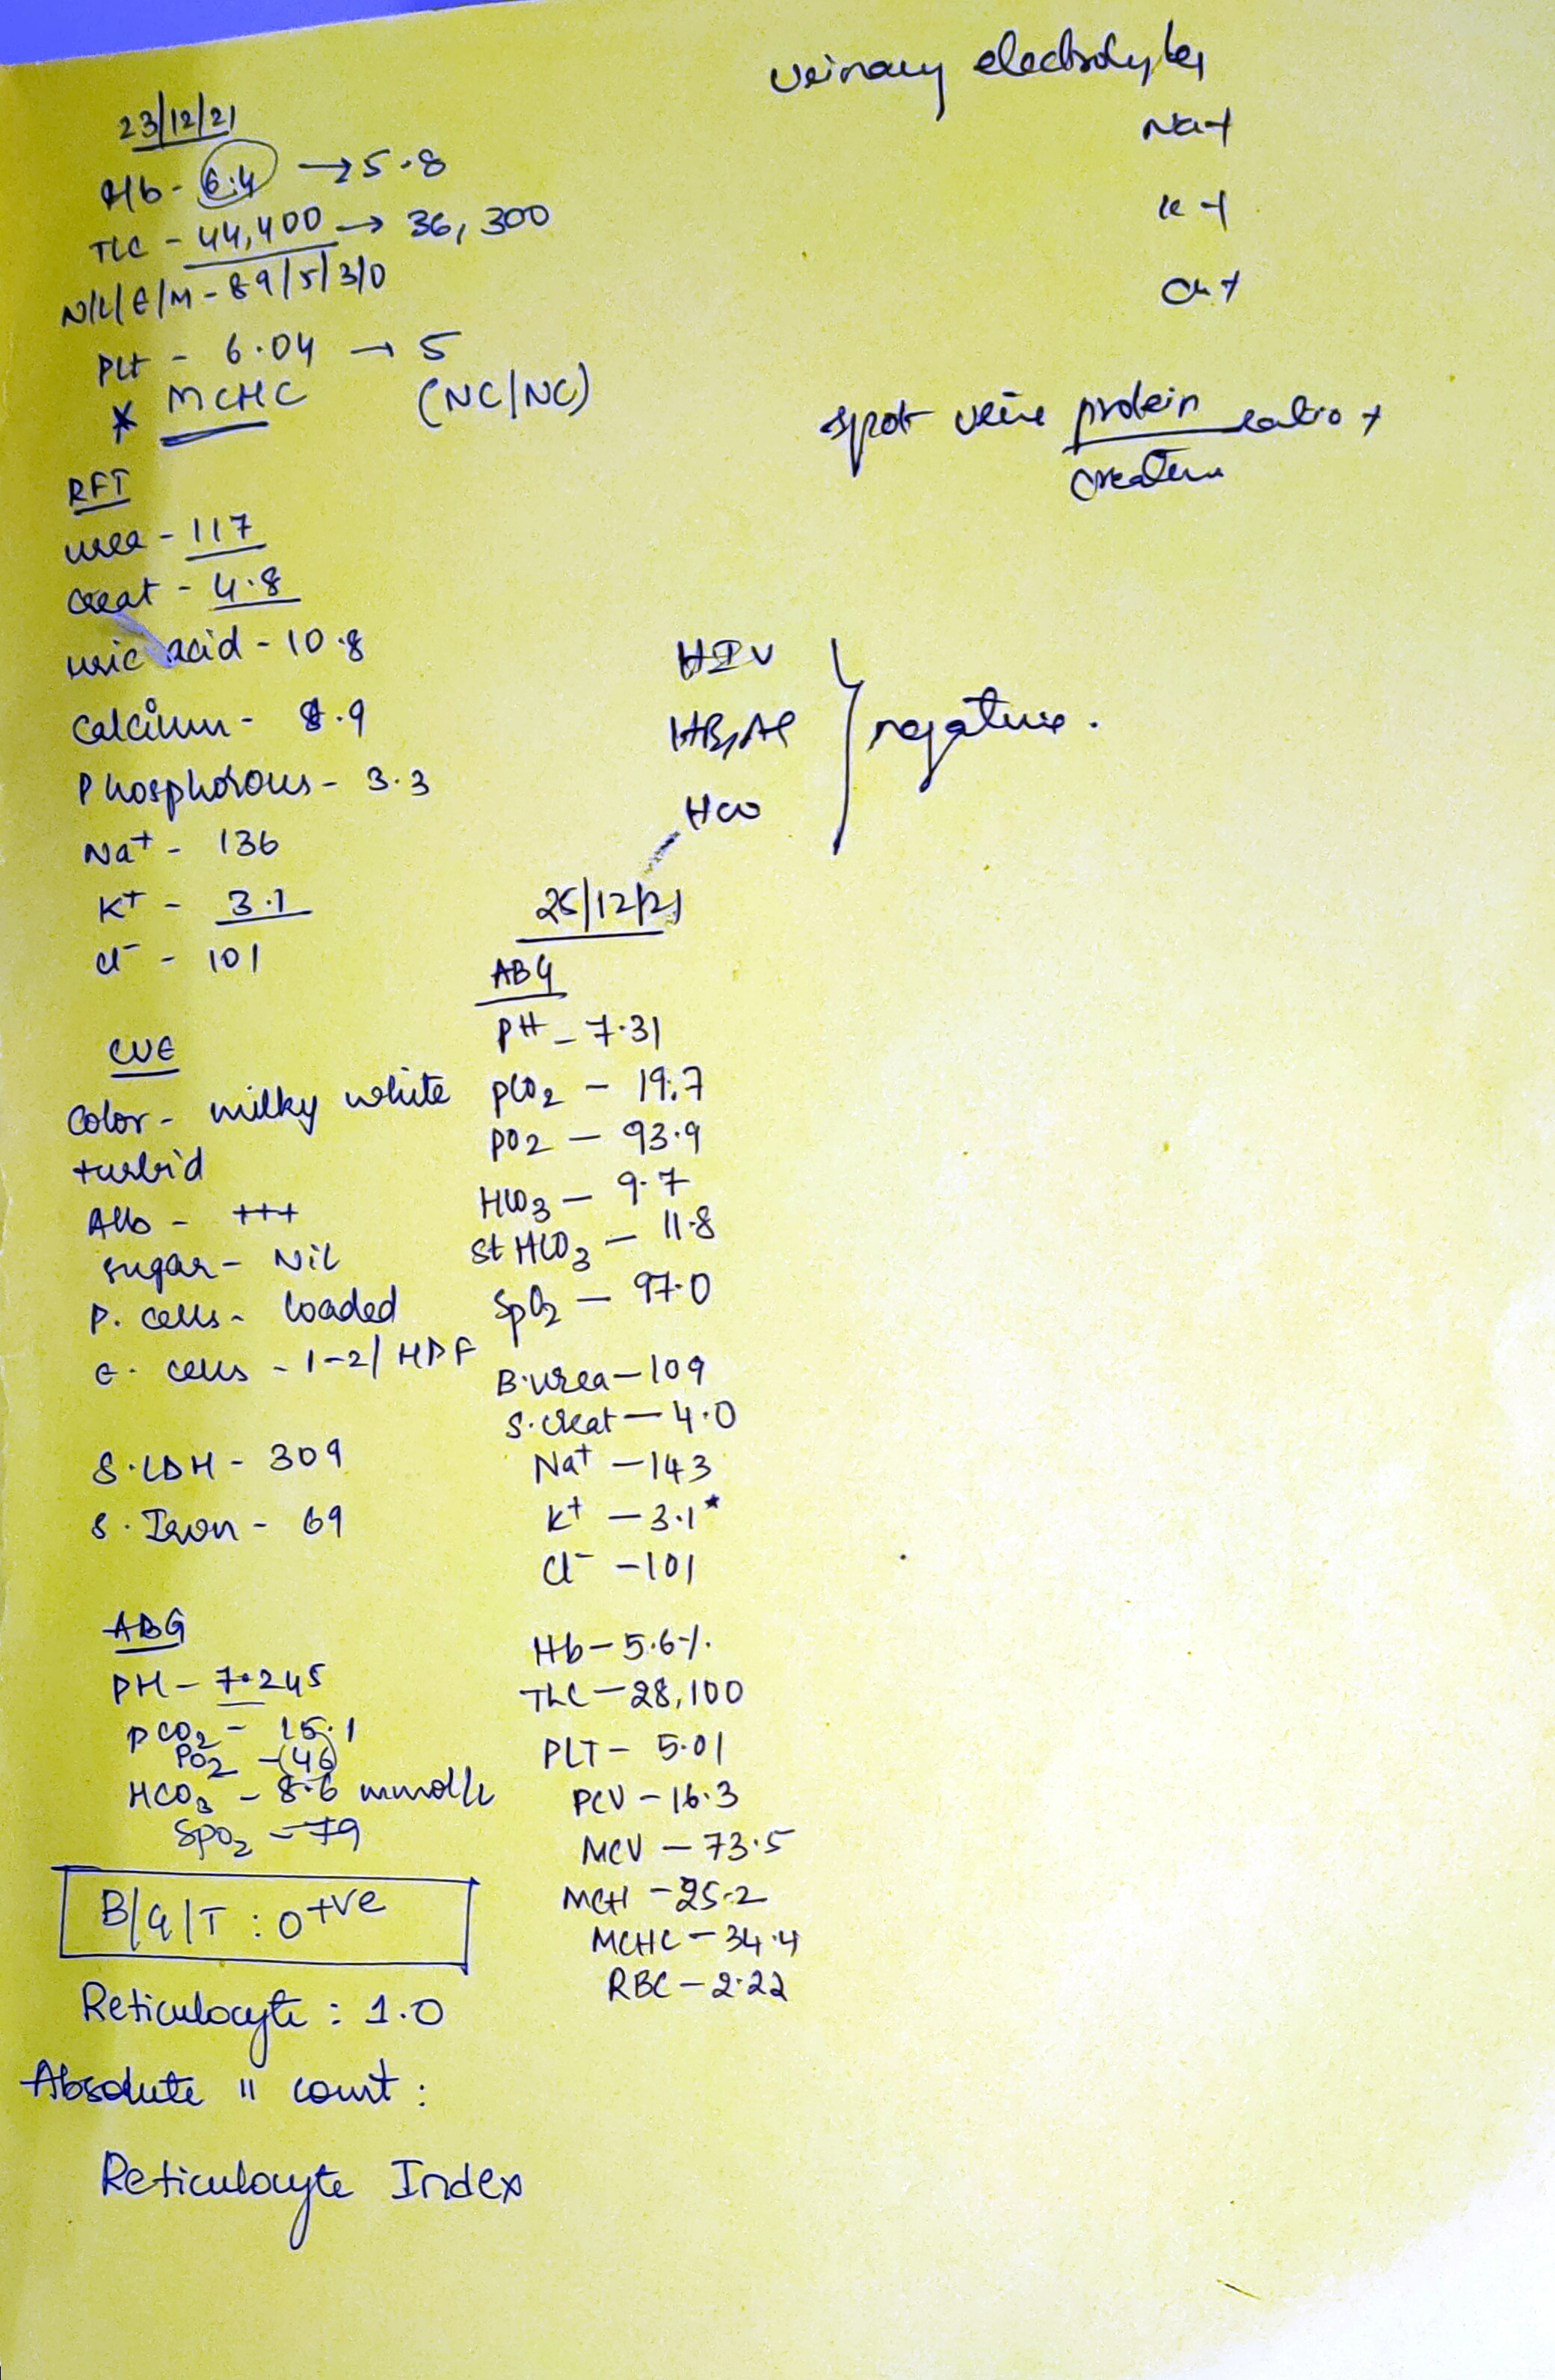 23/12/21
Hb - 6.4 → 5.8
TLC - 44,400 → 36,300
N/L/E/M - 89/5/3/0
PLt - 6.04 → 5
* MCHC (NC/NC)
RFT
urea - 117
creat - 4.8
uric acid - 10.8
Calcium - 8.9
Phosphorous - 3.3
Na+ - 136
K+ - 3.1
Cl- - 101
CUE
Color - milky white
turbid
Alb - +++
sugar - Nil
P. cells - loaded
E. cells - 1-2/HPF
S.LDH - 309
S. Iron - 69
ABG
PH - 7.245
PCO2 - 15.1
PO2 - (46)
HCO3 - 8.6 mmol/L
SpO2 - 79
B/G/T : O+ve
Reticulocyte : 1.0
Absolute " count :
Reticulocyte Index
urinary electrolytes
Na+
K+
spot urine protein ratio +
HIV
negative.
HCV
25/12/21
ABG
PH - 7.31
pCO2 - 19.7
PO2 - 93.9
HCO3 - 9.7
St HCO3 - 11.8
SpO2 - 97.0
B.urea - 109
S.creat - 4.0
Na+ - 143
K+ - 3.1*
Cl- - 101
Hb - 5.6%.
TLC - 28,100
PLT - 5.01
PCV - 16.3
MCV - 73.5
MCH - 25.2
MCHC - 34.4
RBC - 2.22